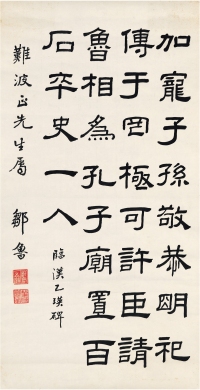 加寵子孫敬恭明祀
傳于罔極可許臣請
魯相為孔子廟置百
石卒史一人
臨漢乙瑛碑
難波正先生屬
鄒魯